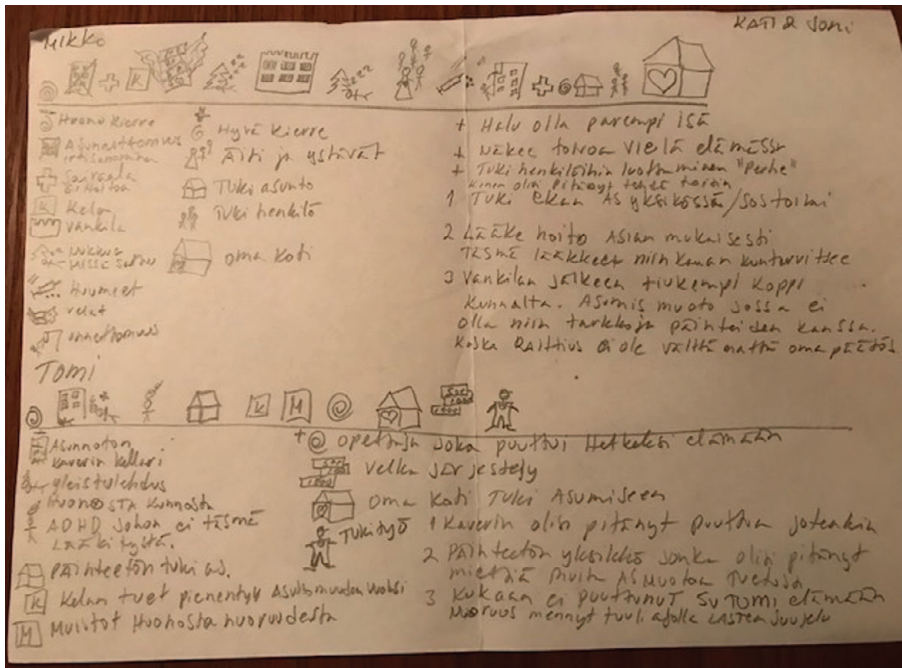 MIKKO
KATI & Joni
K
Huono kierre
Asunnottomuus
irtisanominen
Sairaala
Kela
K
Vankila
Huumeet
velat
onnettomuus
Hyvä kierre
Äiti ja ystävät
Tuki asunto
Tuki henkilö
oma koti
+ Halu olla parempi isä
+ Näkee toivoa vielä elämässä
+ Tuki henkilöihin luottaminen "Perhe"
olisi pitänyt tehdä toisin
1 Tuki ekan AS yksikössä/sostoimi
2 Lääke hoito Asian mukaisesti
Täsmä lääkkeet niin kauan kun tarvitsee
3 Vankilan jälkeen tiukempi koppi
kunnalta. Asumis muoto jossa ei
olla niin tarkkoja päihteiden kanssa.
Koska Raittius ei ole välttämättä oma päätös
TOMI
K M
Asunnoton
kaverin kellari
yleistulehdus
Huonosta kunnosta
ADHD Johon ei täsmä
Lääkitystä.
Päihteetön tuki as.
K Kelan tuet pienentyy Asuttomuuden vuoksi
M Muistot Huonosta nuoruudesta
+ opettaja joka puuttui Hetkeksi elämään
Velka järjestely
oma koti Tuki Asumiseen
Tukityö
1 Kaverin olisi pitänyt puuttua jotenkin
2 Päihteetön yksikkö jonka olisi pitänyt
miettiä muita AS Muotoa
3 Kukaan ei puuttunut Tomi elämään
Nuoruus mennyt tuuli ajolla Lasten suojelu